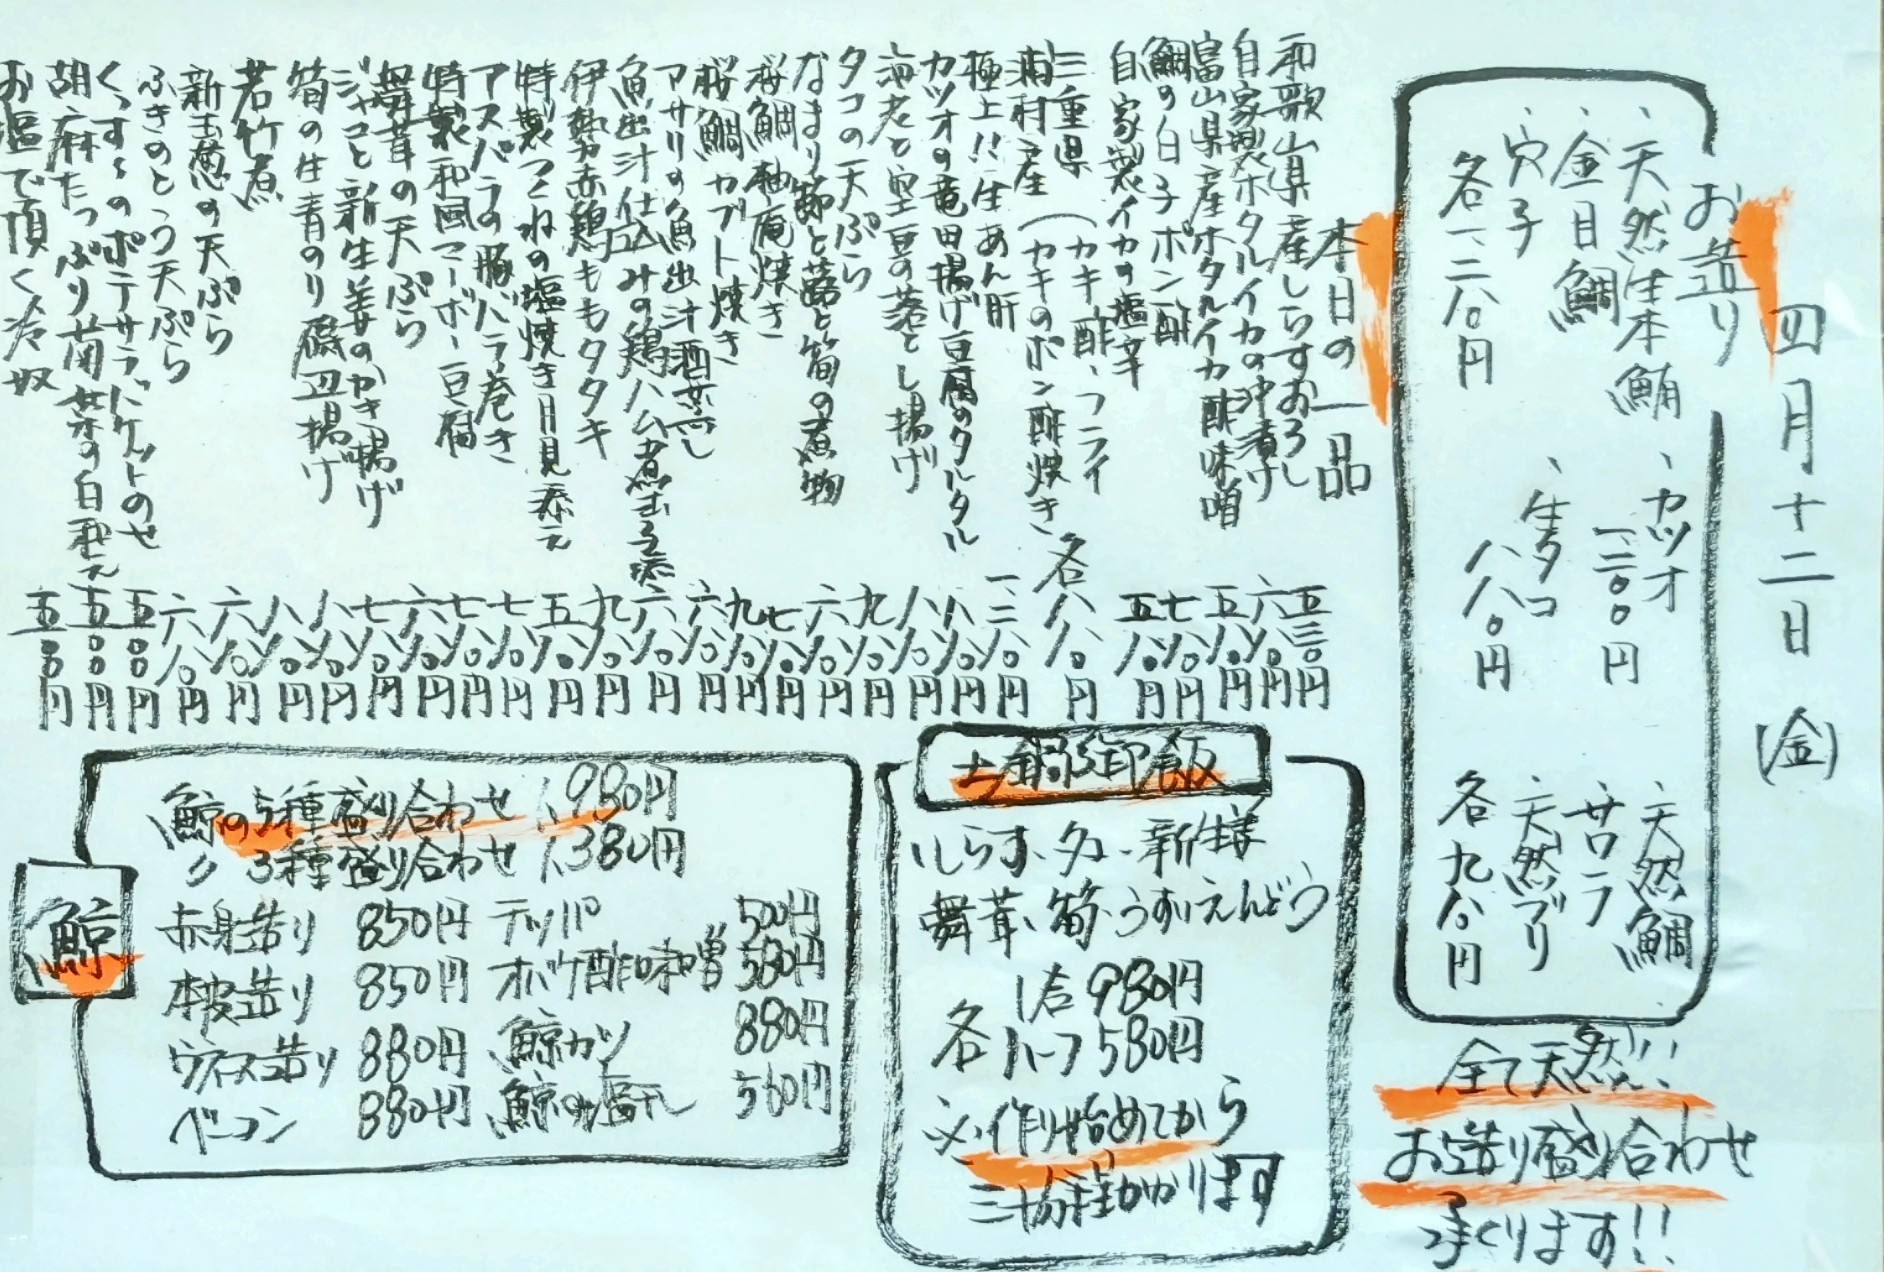 四月十二日(金)
お造り
、天然生本鮪
、金目鯛
、穴子
各一二八〇円
、カツオ
一二〇〇円
、生タコ
八八〇円
、天然鯛
、サワラ
、天然ブリ
各九八〇円
全て天然!!
お造り盛り合わせ
承ります!!
本日の一品
和歌山県産しらすおろし 五三〇円
自家製ホタルイカの沖漬け 六八〇円
富山県産ホタルイカ酢味噌 五八〇円
鯛の白子ポン酢 七八〇円
自家製イカの塩辛 五八〇円
三重県 (カキ酢、フライ
浦村産 (カキのポン酢焼き 各八八〇円
極上!!生あん肝 一二八〇円
カツオの竜田揚げ豆腐のタルタル 八八〇円
海老と空豆の落とし揚げ 八八〇円
タコの天ぷら 九八〇円
なまり節と蕗と筍の煮物 六八〇円
桜鯛柚庵焼き 七八〇円
桜鯛カブト焼き 九八〇円
アサリの魚出汁酒蒸し 六八〇円
魚出汁仕込みの鶏ハム煮玉子添え 六八〇円
伊勢赤鶏ももタタキ 九八〇円
特製つくねの塩焼き月見添え 五八〇円
アスパラの豚バラ巻き 七八〇円
特製和風マーボー豆腐 七八〇円
舞茸の天ぷら 六八〇円
ジャコと新生姜のかき揚げ 七八〇円
筍の生青のり磯辺揚げ 八八〇円
若竹煮 八八〇円
新玉葱の天ぷら 六八〇円
ふきのとう天ぷら 六八〇円
くんすものポテサラバケットのせ 五〇〇円
胡麻たっぷり菊菜の白和え 五〇〇円
お塩で頂く冷奴 五〇〇円
土鍋御飯
しらす、タコ、新生姜
舞茸、筍、うすいえんどう
1合 980円
各ハーフ 580円
※作り始めてから
三十分程かかります
鯨
鯨の5種盛り合わせ 1,980円
〃 3種盛り合わせ 1,380円
赤身造り 850円 テッパ 500円
本皮造り 850円 オバケ酢味噌 580円
ウネス造り 880円 鯨カツ 880円
ベーコン 880円 鯨の塩干し 560円